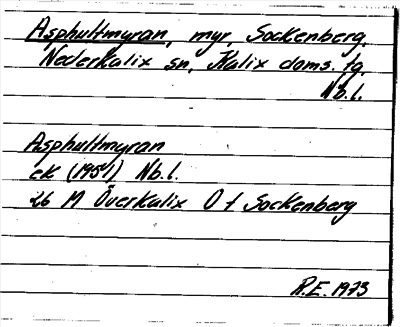 Asphultmyran, myr, Sockenberg,
Nederkalix sn, Kalix doms. tg,
Nb.l.
Asphultmyran
ek (1951) Nb.l.
26 M Överkalix O f Sockenberg
R.E. 1973